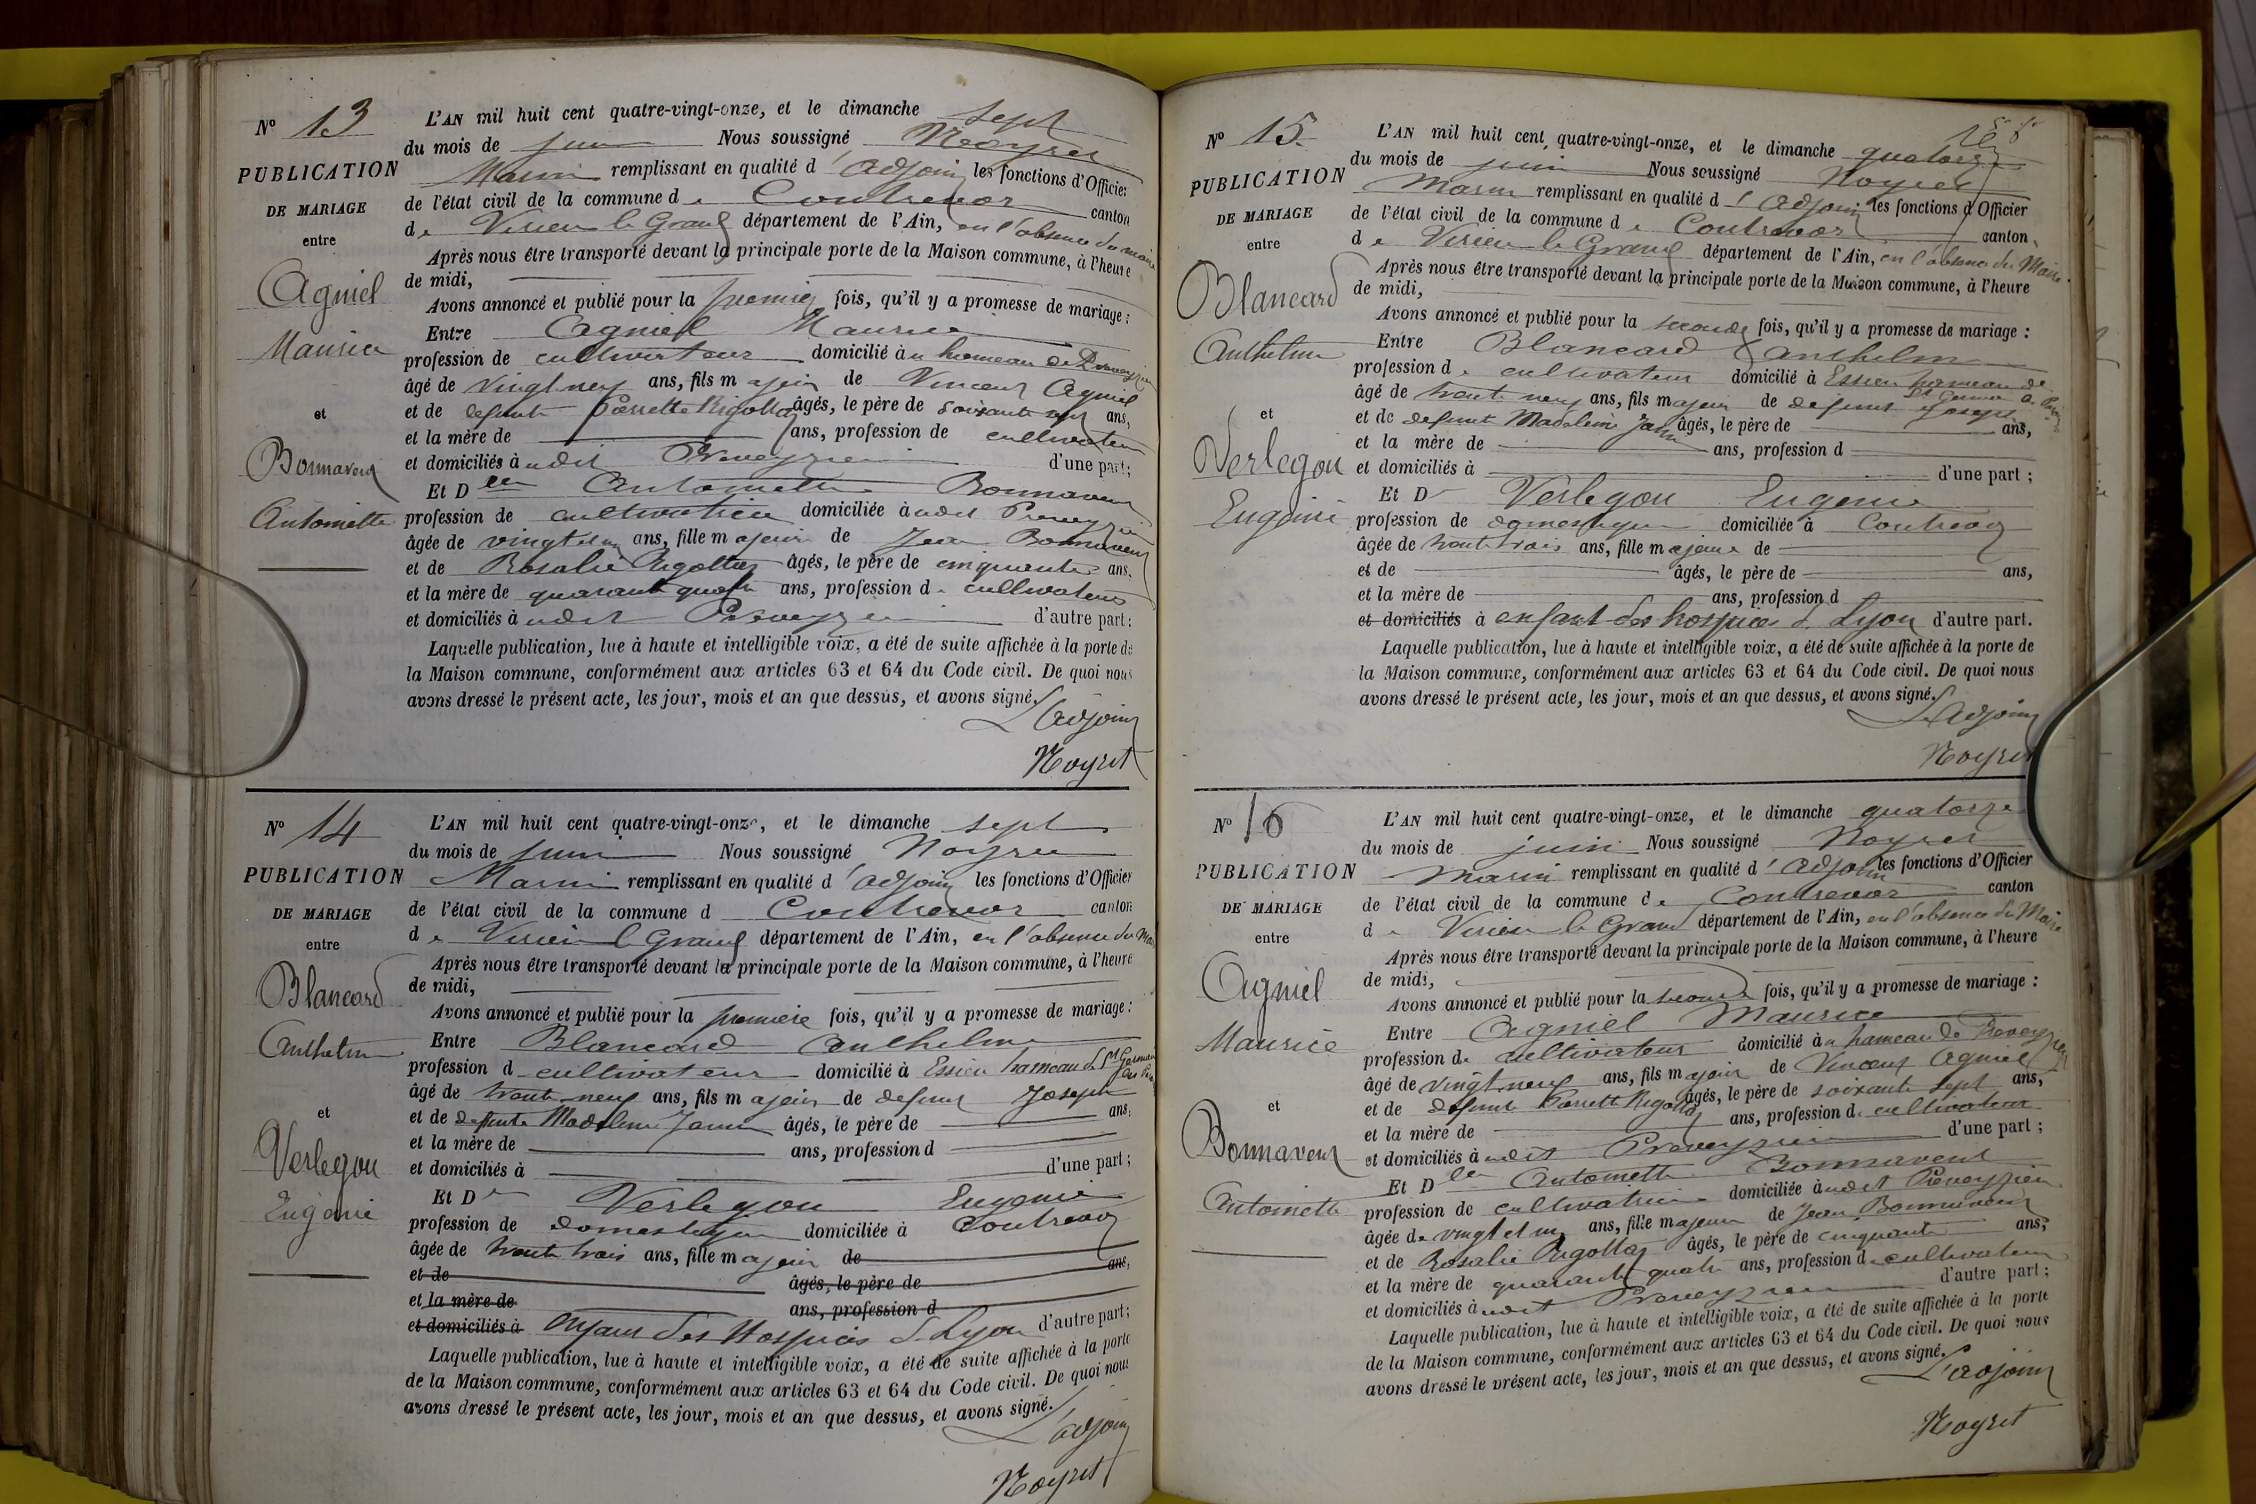 N° 13
PUBLICATION
DE MARIAGE
entre
Agniel
Maurice
et
Bonnavent
Antoinette
L'AN mil huit cent quatre-vingt-onze, et le dimanche sept
du mois de juin Nous soussigné Noyret
Marin remplissant en qualité d'adjoint les fonctions d'Officier
de l'état civil de la commune de Contrevoz canton
de Virieu le Grand département de l'Ain, en l'absence du maire
Après nous être transporté devant la principale porte de la Maison commune, à l'heure
de midi,
Avons annoncé et publié pour la première fois, qu'il y a promesse de mariage :
Entre Agniel Maurice
profession de cultivateur domicilié au hameau de Preveyzieu
âgé de vingt neuf ans, fils majeur de Vincent Agniel
et de defunte Pierrette Rigollet âgés, le père de soixante sept ans,
et la mère de ans, profession de cultivateur
et domiciliés audit Preveyzieu d'une part ;
Et Dlle Antoinette Bonnavent
profession de cultivatrice domiciliée audit Preveyzieu
âgée de vingt et un ans, fille majeure de Jean Bonnavent
et de Rosalie Rigollet âgés, le père de cinquante ans,
et la mère de quarante quatre ans, profession de cultivateurs
et domiciliés audit Preveyzieu d'autre part ;
Laquelle publication, lue à haute et intelligible voix, a été de suite affichée à la porte de
la Maison commune, conformément aux articles 63 et 64 du Code civil. De quoi nous
avons dressé le présent acte, les jour, mois et an que dessus, et avons signé.
L'adjoint
Noyret
N° 14
PUBLICATION
DE MARIAGE
entre
Blancard
Anthelme
et
Verlegou
Eugénie
L'AN mil huit cent quatre-vingt-onze, et le dimanche sept
du mois de juin Nous soussigné Noyret
Marin remplissant en qualité d'adjoint les fonctions d'Officier
de l'état civil de la commune d Contrevoz canton
de Virieu le Grand département de l'Ain, en l'absence du Maire
Après nous être transporté devant la principale porte de la Maison commune, à l'heure
de midi,
Avons annoncé et publié pour la première fois, qu'il y a promesse de mariage :
Entre Blancard Anthelme
profession d cultivateur domicilié à Essieu hameau de St Germain
âgé de trente neuf ans, fils majeur de defunt Joseph
et de defunte Madeleine Janin âgés, le père de ans,
et la mère de ans, profession d
et domiciliés à d'une part ;
Et D Verlegou Eugenie
profession de domestique domiciliée à Contrevoz
âgée de trente trois ans, fille majeur de
et de âgés, le père de ans,
et la mère de ans, profession d
et domiciliés à enfant des Hospices de Lyon d'autre part ;
Laquelle publication, lue à haute et intelligible voix, a été de suite affichée à la porte
de la Maison commune, conformément aux articles 63 et 64 du Code civil. De quoi nous
avons dressé le présent acte, les jour, mois et an que dessus, et avons signé.
L'adjoint
Noyret
N° 15.
PUBLICATION
DE MARIAGE
entre
Blancard
Anthelme
et
Verlegou
Eugénie
L'AN mil huit cent quatre-vingt-onze, et le dimanche quatorze
du mois de juin Nous soussigné Noyret
Marin remplissant en qualité d'adjoint les fonctions d'Officier
de l'état civil de la commune de Contrevoz canton
de Virieu le Grand département de l'Ain, en l'absence du Maire
Après nous être transporté devant la principale porte de la Maison commune, à l'heure
de midi,
Avons annoncé et publié pour la seconde fois, qu'il y a promesse de mariage :
Entre Blancard Anthelm
profession de cultivateur domicilié à Essieu hameau de
St Germain
âgé de trente neuf ans, fils majeur de defunt Joseph
et de defunte Madeleine Janin âgés, le père de ans,
et la mère de ans, profession d
et domiciliés à d'une part ;
Et D Verlegou Eugenie
profession de domestique domiciliée à Contrevoz
âgée de trente trois ans, fille majeure de
et de âgés, le père de ans,
et la mère de ans, profession d
et domiciliés à enfant des hospices de Lyon d'autre part.
Laquelle publication, lue à haute et intelligible voix, a été de suite affichée à la porte de
la Maison commune, conformément aux articles 63 et 64 du Code civil. De quoi nous
avons dressé le présent acte, les jour, mois et an que dessus, et avons signé.
L'adjoint
Noyret
N° 16
PUBLICATION
DE MARIAGE
entre
Agniel
Maurice
et
Bonnavent
Antoinette
L'AN mil huit cent quatre-vingt-onze, et le dimanche quatorze
du mois de juin Nous soussigné Noyret
Marin remplissant en qualité d'adjoint les fonctions d'Officier
de l'état civil de la commune de Contrevoz canton
de Virieu le Grand département de l'Ain, en l'absence du Maire
Après nous être transporté devant la principale porte de la Maison commune, à l'heure
de midi,
Avons annoncé et publié pour la seconde fois, qu'il y a promesse de mariage :
Entre Agniel Maurice
profession de cultivateur domicilié au hameau de Preveyzieu
âgé de vingt neuf ans, fils majeur de Vincent Agniel
et de defunte Pierrette Rigollet âgés, le père de soixante sept ans,
et la mère de ans, profession de cultivateur
et domiciliés audit Preveyzieu d'une part ;
Et Dlle Antoinette Bonnavent
profession de cultivatrice domiciliée audit Preveyzieu
âgée de vingt et un ans, fille majeure de Jean Bonnavent
et de Rosalie Rigollet âgés, le père de cinquante ans,
et la mère de quarante quatre ans, profession de cultivateurs
et domiciliés audit Preveyzieu d'autre part ;
Laquelle publication, lue à haute et intelligible voix, a été de suite affichée à la porte
de la Maison commune, conformément aux articles 63 et 64 du Code civil. De quoi nous
avons dressé le présent acte, les jour, mois et an que dessus, et avons signé.
L'adjoint
Noyret